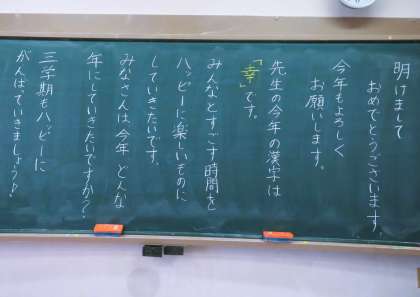 明けまして
おめでとうございます
今年もよろしく
お願いします。
先生の今年の漢字は
「幸」です。
みんなとすごす時間を
ハッピーに楽しいものに
していきたいです。
みなさんは、今年、どんな
年にしていきたいですか？
三学期もハッピーに
がんばっていきましょう！